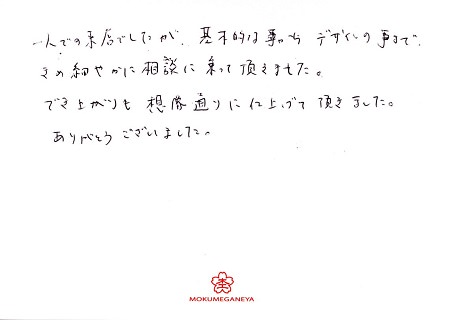 一人での来店でしたが、基本的な事からデザインの事まで、
きめ細やかに相談に乗って頂きました。
でき上がりも想像通りに仕上げて頂きました。
ありがとうございました。
MOKUMEGANEYA